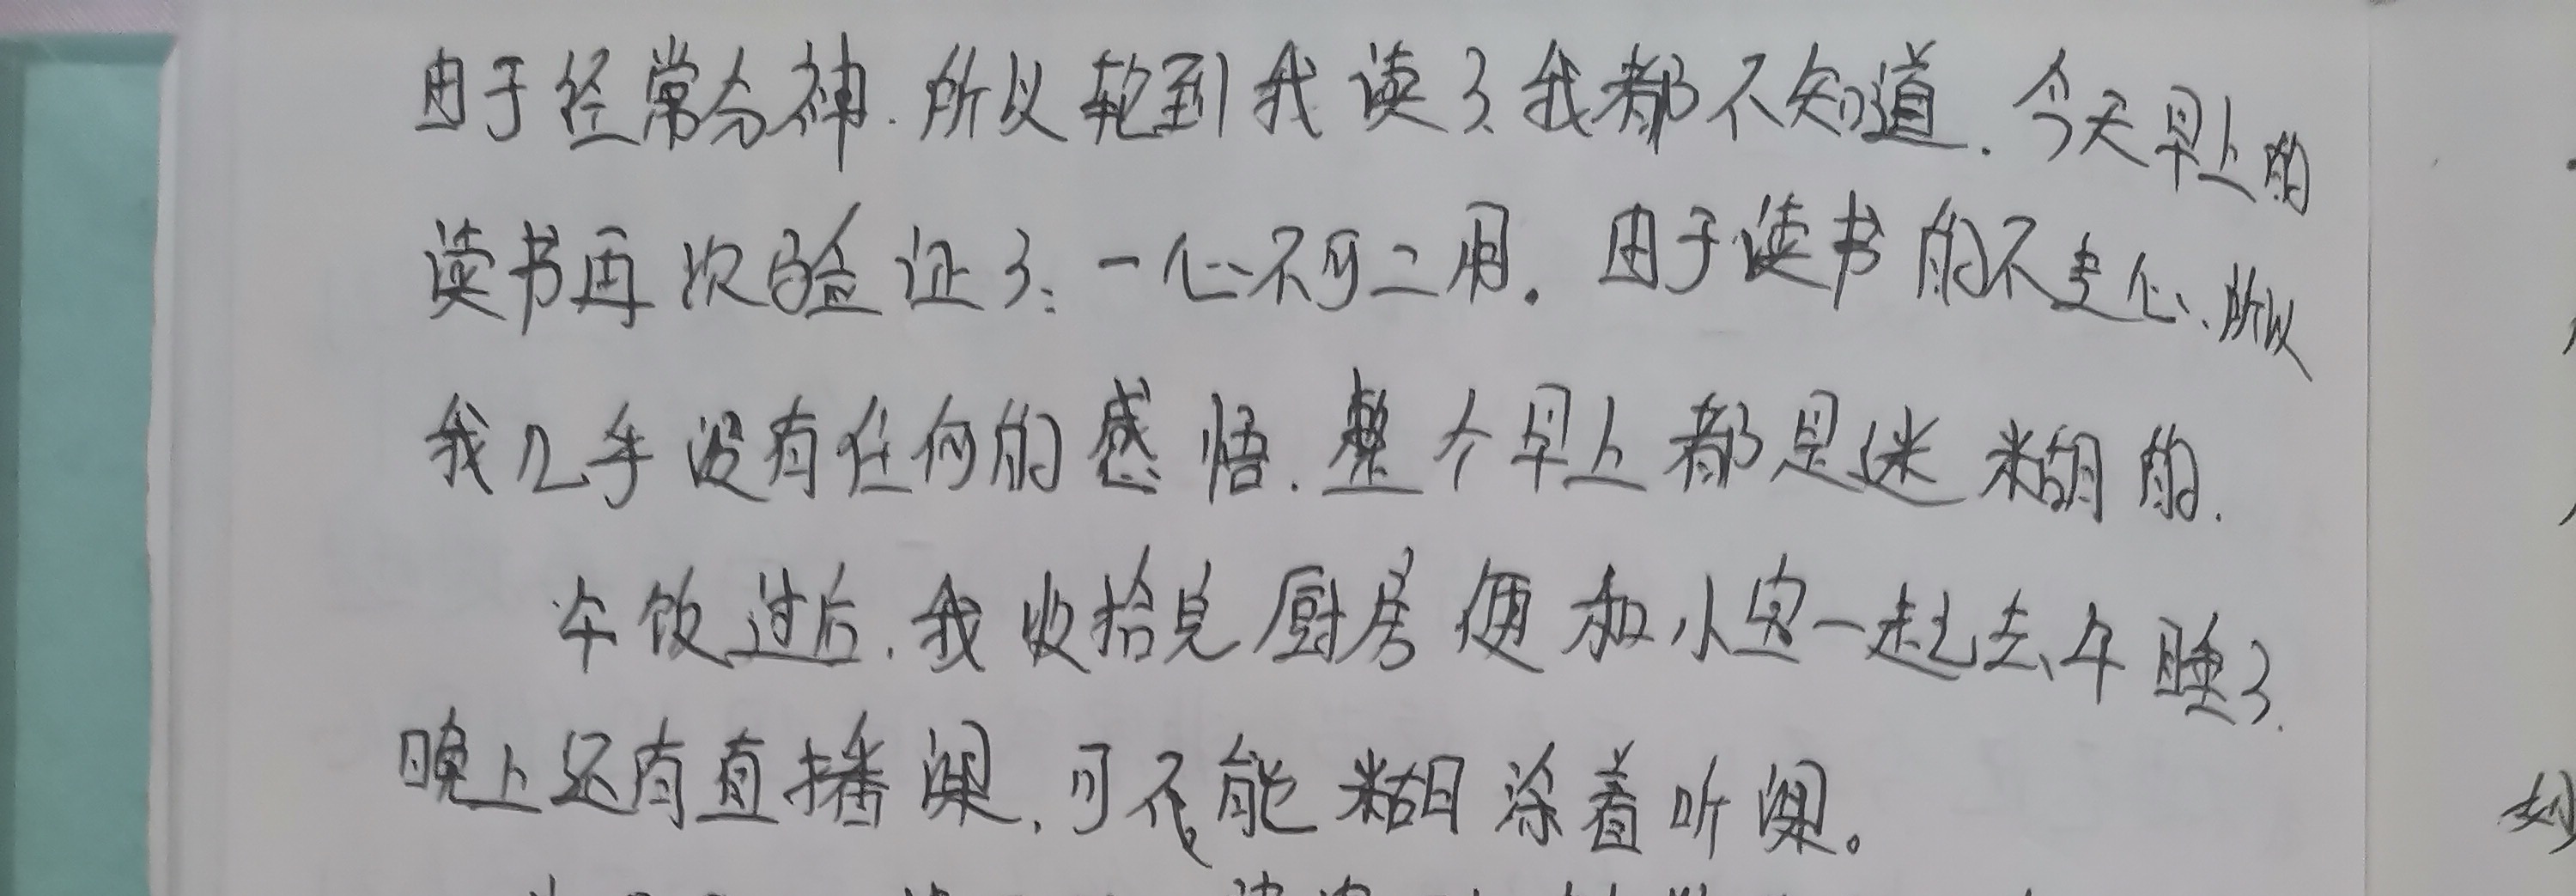 由于经常分神.所以轮到我读了我都不知道.今天早上的
读书再次验证了:一心不可二用.由于读书的不走心、所以
我几乎没有任何的感悟.整个早上都是迷糊的.
午饭过后.我收拾完厨房便和小宝一起去午睡了.
晚上还有直播课,可不能糊涂着听课。